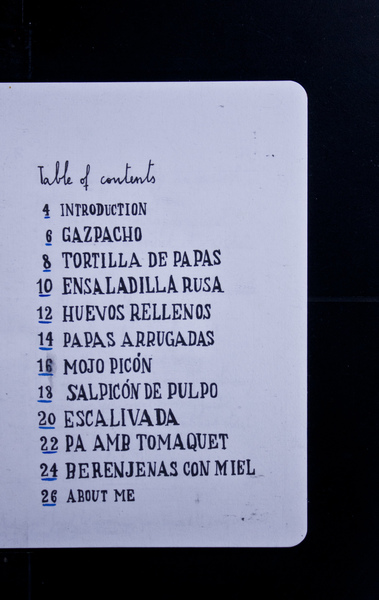 Table of contents
4 INTRODUCTION
6 GAZPACHO
8 TORTILLA DE PAPAS
10 ENSALADILLA RUSA
12 HUEVOS RELLENOS
14 PAPAS ARRUGADAS
16 MOJO PICÓN
18 SALPICÓN DE PULPO
20 ESCALIVADA
22 PA AMB TOMAQUET
24 BERENJENAS CON MIEL
26 ABOUT ME